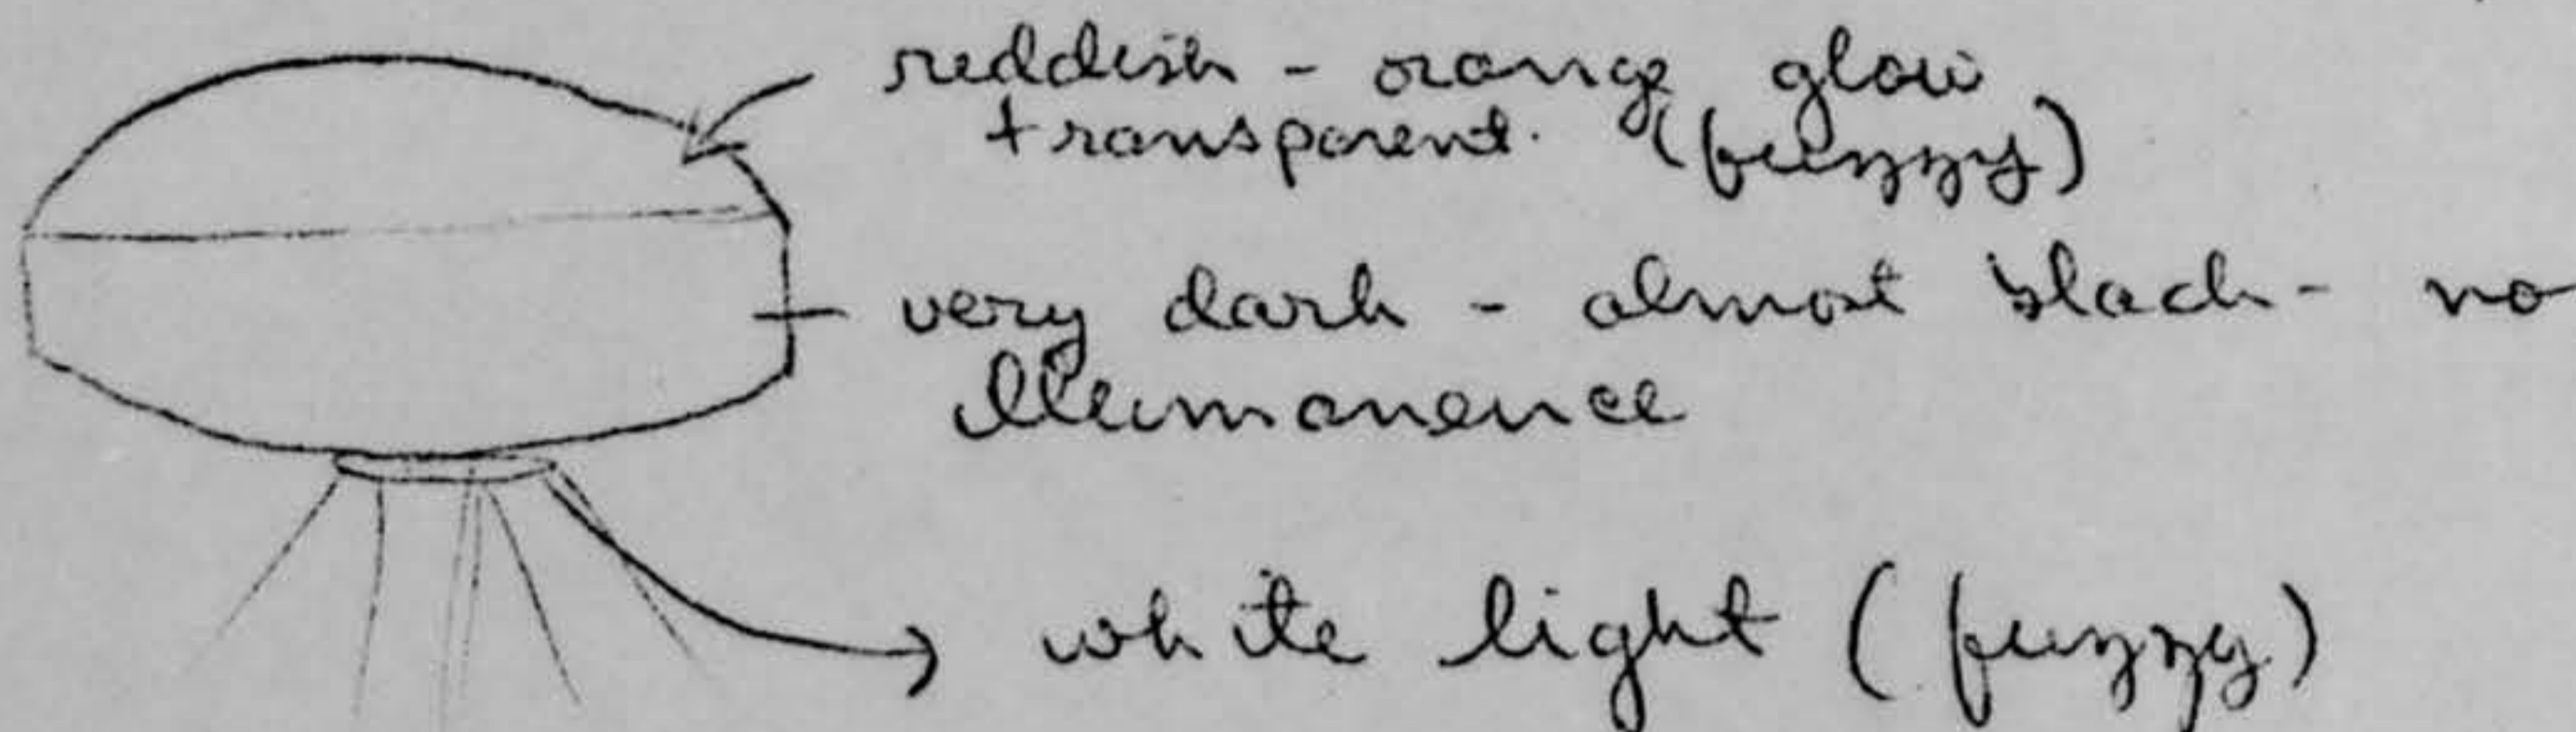 reddish - orange glow
transparent. (fuzzy)
very dark - almost black - no
illumanence
white light (fuzzy)